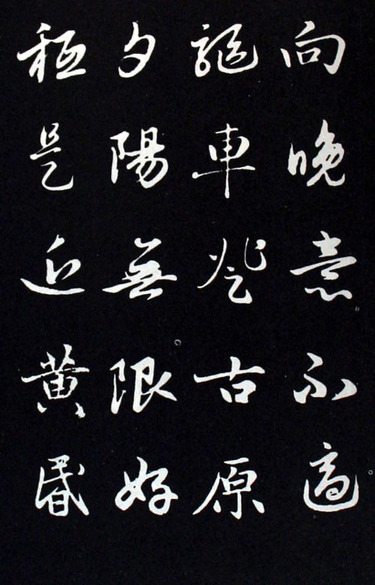 向晚意不適
驅車登古原
夕陽無限好
秪是近黄昬